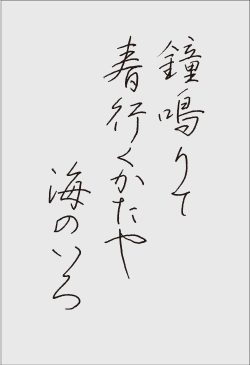 鐘鳴りて
春行くかたや
海のいろ